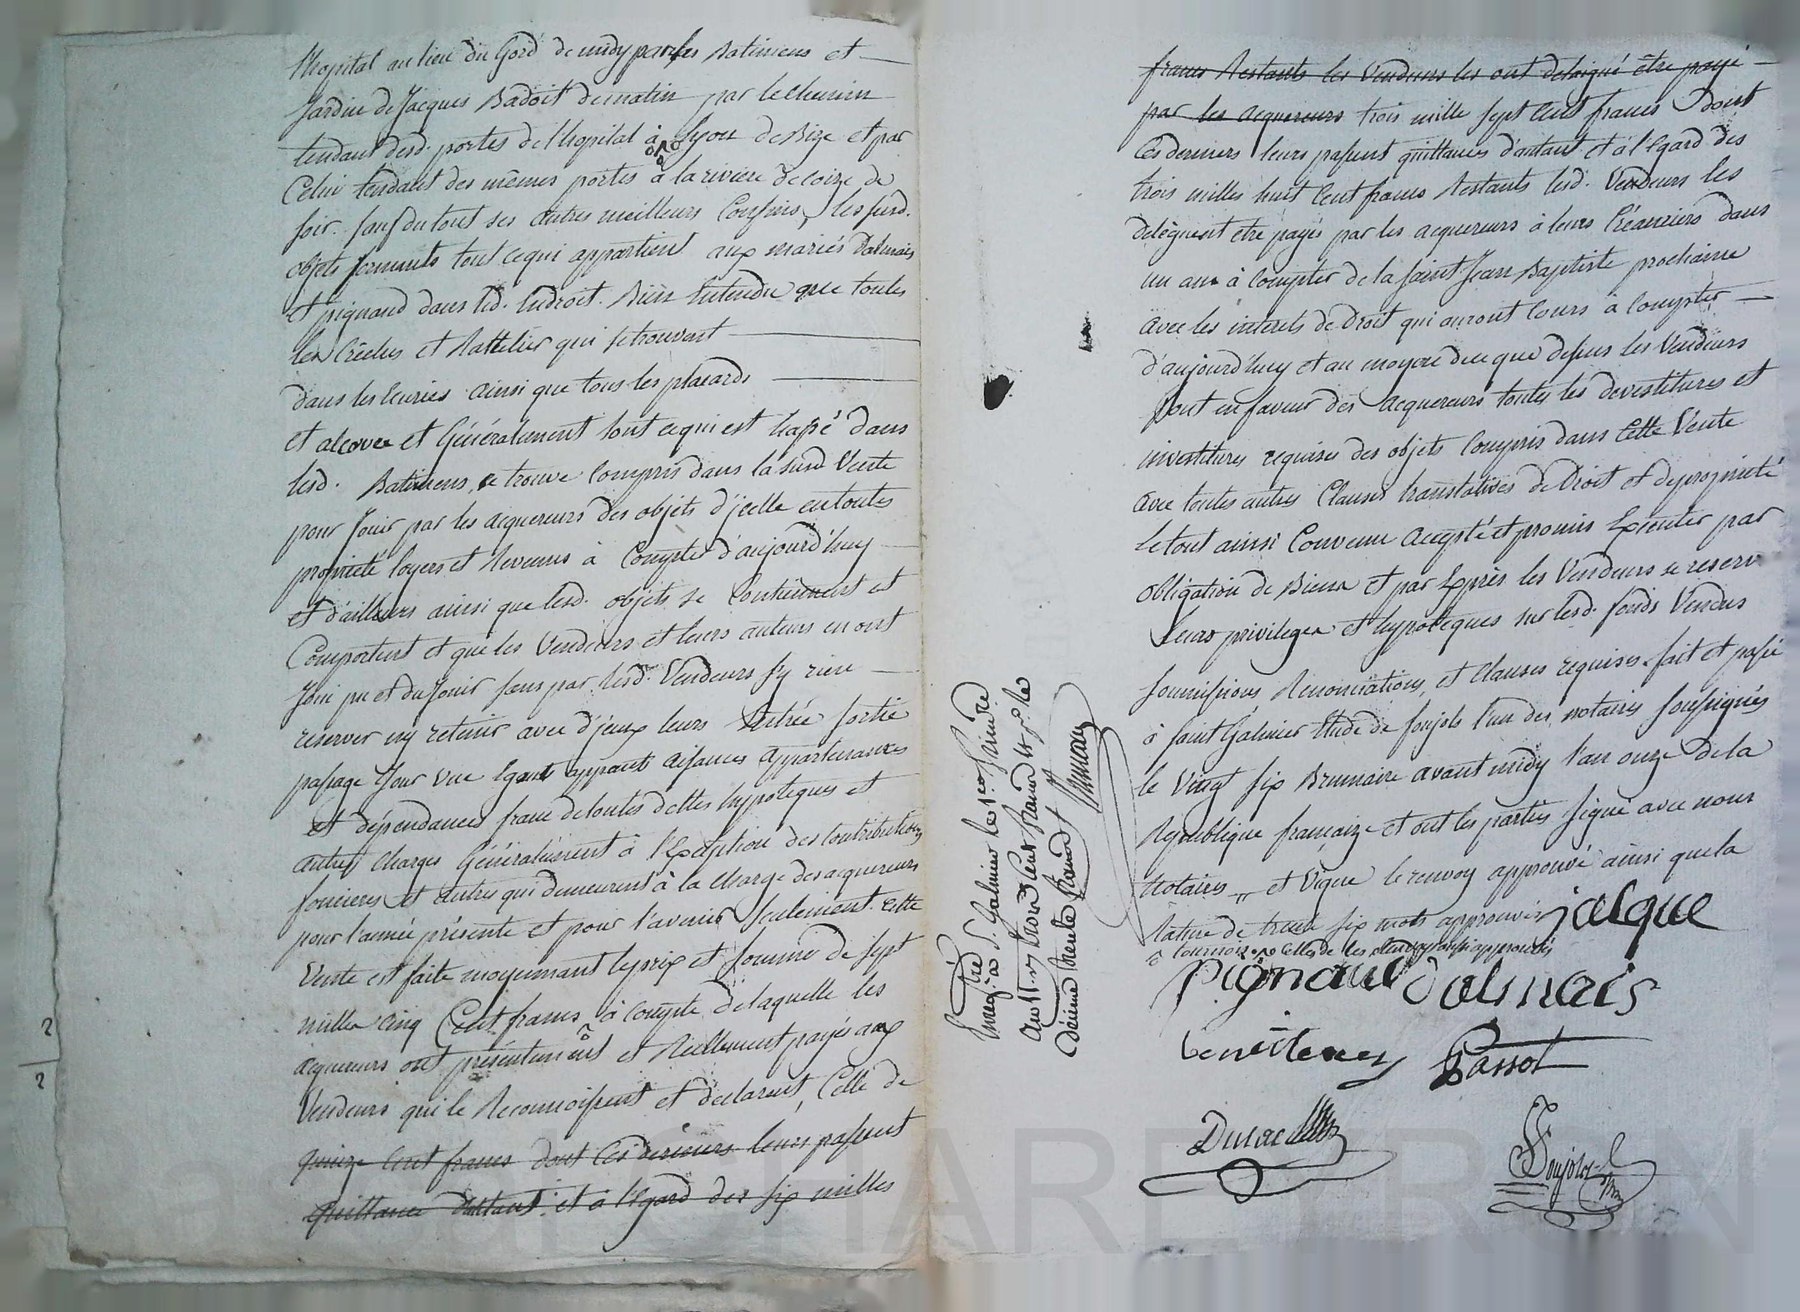 l'hopital au lieu du Gord de midy par les Batimens et
Jardin de Jacques Badoit de matin par le chemin
tendant desd. portes de l'hopital à Lyon de Bize et par
Celui tendant des mêmes portes à la riviere de coize de
soir. sauf du tout ses autres meilleurs Confins, les susd.
objets formants tout cequi appartient aux mariés Dalmais
et pignaud dans led. Endroit. Bien Entendu que toutes
les Crêches et Rattelier qui se trouvent
dans les Ecuries ainsi que tous les placards
et alcovee et Généralement tout cequi est dans
lesd. Batimens, se trouve Compris dans la susd Vente
pour Jouir par les acquereurs des objets d'jcelle en toutes
proprieté loyers et Revenus à Compter d'aujourd'huy
et d'ailleurs ainsi que lesd. objets se Contiennent et
Comportent et que les Vendeurs et leurs auteurs en ont
Joui pu et du Jouir sans par lesd. Vendeurs s'y rien
reserver ny retenir avec d'jceux leurs Entrée sortie
passage Jour vue Egout apparts aisances appartenances
et dépendances franc de toutes dettes hypoteques et
autres Charges Généralement à l'Exception des Contributions
foncieres et autres qui demeurent à la charge des acquereurs
pour l'année présente et pour l'avenir seulement. Cette
Vente est faite moyennant le prix et somme de sept
mille cinq Cent francs, à compte de laquelle les
acquereurs ont présentement et Réellement payés aux
Vendeurs qui le Reconnoissent et declarent, Celle de
quinze Cent francs dont Ces derniers leurs passent
quittance d'autant et à l'égard des six milles
2
2
Enreg.tré à S. Galmier le
an 11. Cent francs
Décime trente francs
francs Restants les Vendeurs les ont delaigué être payé
par les acquereurs trois mille sept Cent francs dont
Ces derniers leurs passent quittances d'autant et à l'Egard des
trois milles huit Cent francs Restants lesd. Vendeurs les
délèguent etre payés par les acquereurs à leurs Créanciers dans
un an à Compter de la Saint Jean Baptiste prochaine
avec les interets de Droit qui auront Cours à Compter
d'aujourd'huy et au moyen de ce que dessus les Vendeurs
font en faveur des acquereurs toutes les devestitures et
investitures requises des objets Compris dans Cette Vente
avec toutes autres Clauses translatives de Droit et de proprieté
le tout ainsi Convenu accepté et promis Executer par
obligation de Biens et par Exprès les Vendeurs se reserv
leurs privileges et hypoteques sur lesd. fonds Vendus
soumissions Renonciations, et clauses requises. fait et passé
à Saint Galmier Etude de Soujols l'un des notaires soussignés
le Vingt six Brumaire avant midy l'an onze de la
Republique française et ont les parties signé avec nous
Notaires et Vigue le renvoy approuvé ainsi que la
Rature de trente six mots approuvés jalque
Pignaud Dalmais
Passot